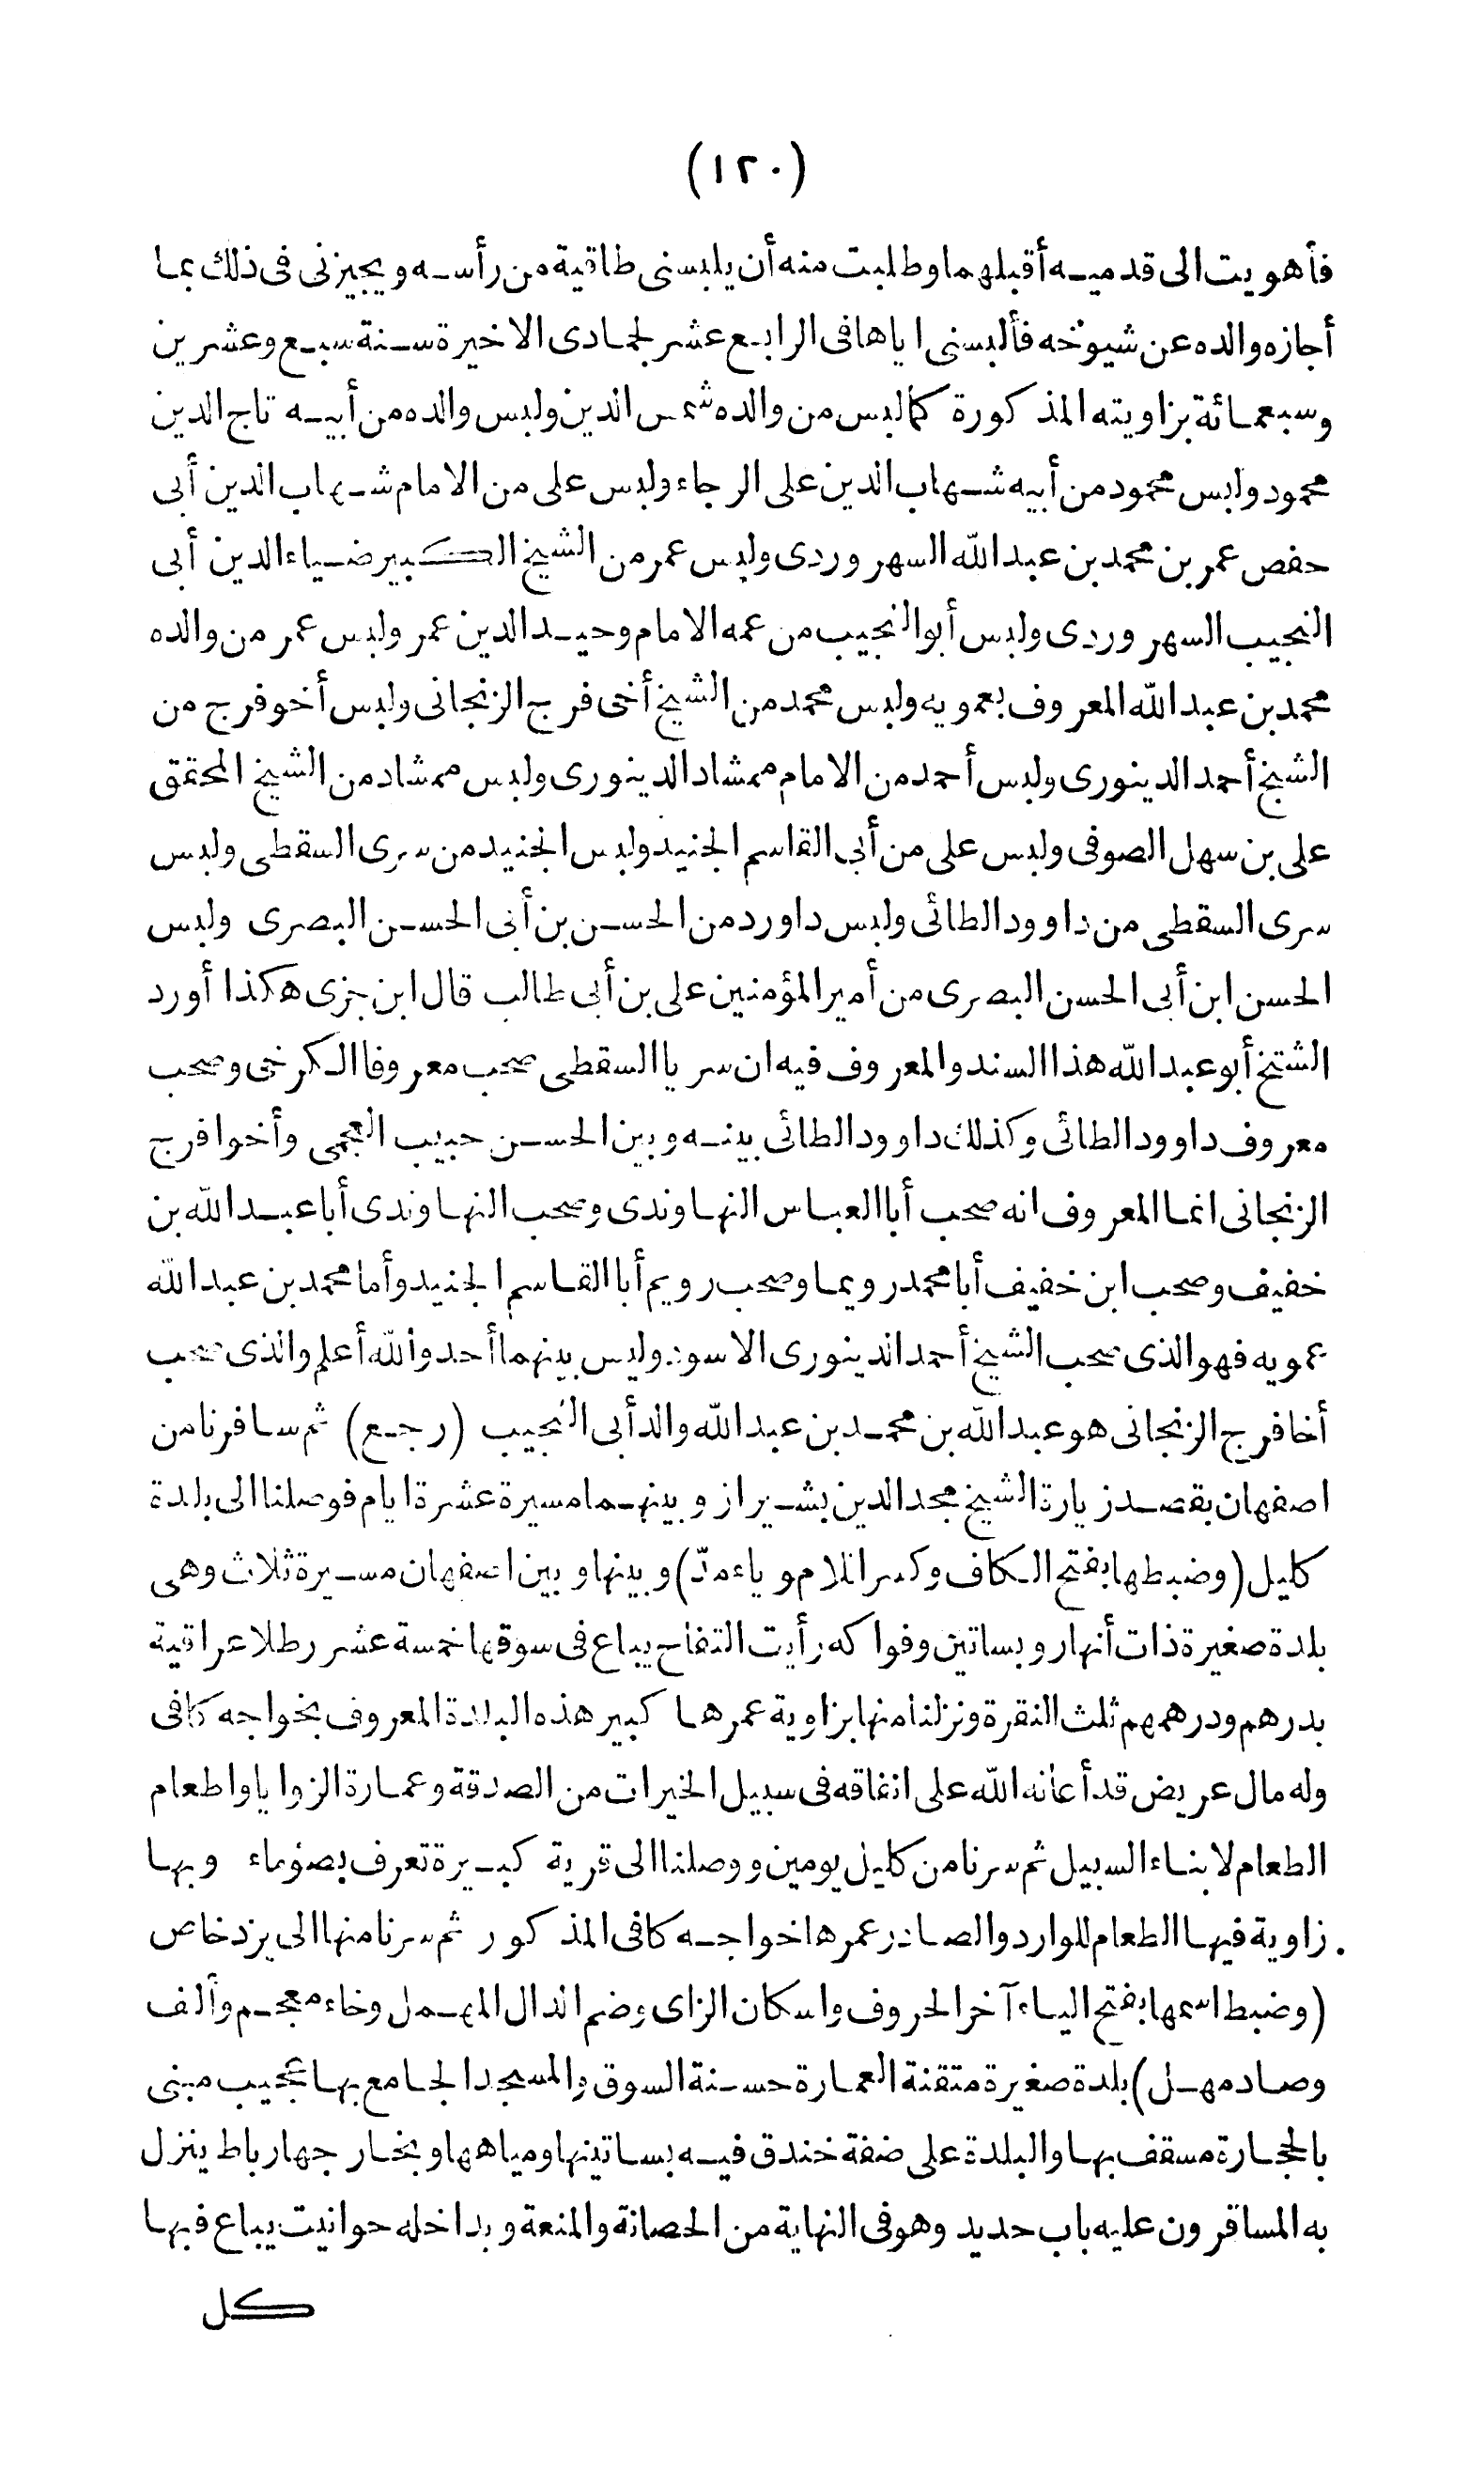 (١٢٠)
فأهويت الى قدميه أقبلهما وطلبت منه أن يلبسنى طاقية من رأسه ويجيزنى فى ذلك بما
أجازه والده عن شيوخه فألبسنى اياها فى الرابع عشر لجمادى الاخيرة سنة سبع وعشرين
وسبعمائة بزاويته المذكورة كما لبس من والده شمس الدين ولبس والده من أبيه تاج الدين
محمود ولبس محمود من أبيه شهاب الدين على الرجاء ولبس على من الامام شهاب الدين أبى
حفص عمر بن محمد بن عبد الله السهروردى ولبس عمر من الشيخ الكبير ضياء الدين أبى
النجيب السهروردى ولبس أبو النجيب من عمه الامام وحيد الدين عمر ولبس عمر من والده
محمد بن عبد الله المعروف بعمويه ولبس محمد من الشيخ أخى فرج الزنجانى ولبس أخو فرج من
الشيخ أحمد الدينورى ولبس أحمد من الامام ممشاد الدينورى ولبس ممشاد من الشيخ المحقق
على بن سهل الصوفى ولبس على من أبى القاسم الجنيد ولبس الجنيد من سرى السقطى ولبس
سرى السقطى من داوود الطائى ولبس داورد من الحسن بن أبى الحسن البصرى ولبس
الحسن ابن أبى الحسن البصرى من أمير المؤمنين على بن أبى طالب قال ابن جزى هكذا أورد
الشيخ أبو عبد الله هذا السند والمعروف فيه ان سريا السقطى صحب معروفا الكرخى وصحب
معروف داوود الطائى وكذلك داوود الطائى بينه وبين الحسن حبيب العجمى وأخوا فرج
الزنجانى انما المعروف انه صحب أبا العباس النهاوندى وصحب النهاوندى أبا عبد الله بن
خفيف وصحب ابن خفيف أبا محمد رويما وصحب رويم أبا القاسم الجنيد وأما محمد بن عبد الله
عمويه فهو الذى صحب الشيخ أحمد الدينورى الاسود وليس بينهما أحد والله أعلم والذى صحب
أخا فرج الزنجانى هو عبد الله بن محمد بن عبد الله والد أبى النجيب (رجع) ثم سافرنا من
اصفهان بقصد زيارة الشيخ مجد الدين بشيراز وبينهما مسيرة عشرة ايام فوصلنا الى بلدة
كليل (وضبطها بفتح الكاف وكسر اللام وياء مدّ) وبينها وبين اصفهان مسيرة ثلاث وهى
بلدة صغيرة ذات أنهار وبساتين وفواكه رأيت التفاح يباع فى سوقها خمسة عشر رطلا عراقية
بدرهم ودرهمهم ثلث النقرة ونزلنا منها بزاوية عمرها كبير هذه البلدة المعروف بخواجه كافى
وله مال عريض قد أعانه الله على انفاقه فى سبيل الخيرات من الصدقة وعمارة الزوايا واطعام
الطعام لابناء السبيل ثم سرنا من كليل يومين ووصلنا الى قرية كبيرة تعرف بصوماء وبها
زاوية فيها الطعام للوارد والصادر عمرها خواجه كافى المذكور ثم سرنا منها الى يزدخاص
(وضبط اسمها بفتح الياء آخر الحروف واسكان الزاى وضم الدال المهمل وخاء معجم وألف
وصاد مهمل) بلدة صغيرة متقنة العمارة حسنة السوق والمسجد الجامع بها عجيب مبنى
بالحجارة مسقف بها والبلدة على ضفة خندق فيه بساتينها ومياهها وبخارجها رباط ينزل
به المسافرون عليه باب حديد وهو فى النهاية من الحصانة والمنعة وبداخله حوانيت يباع فيها
كل